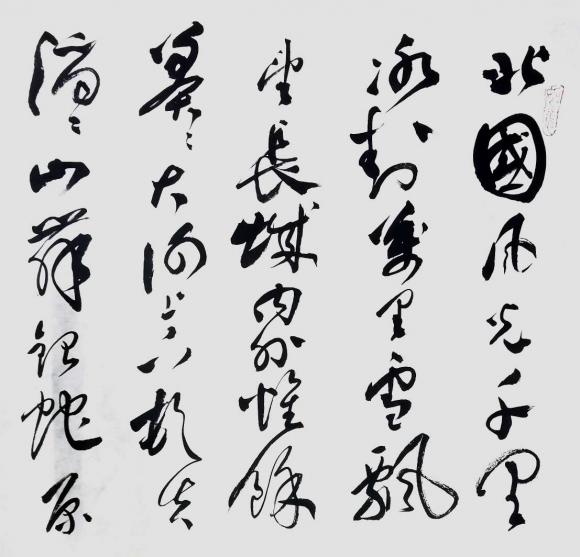 北國风光千里
冰封萬里雪飄
望長城内外惟餘
莽々大河上下頓失
滔々山舞銀蛇原